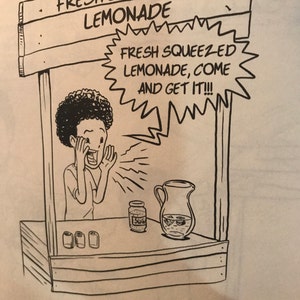 FRESH
LEMONADE
FRESH SQUEEZED
LEMONADE, COME
AND GET IT!!!